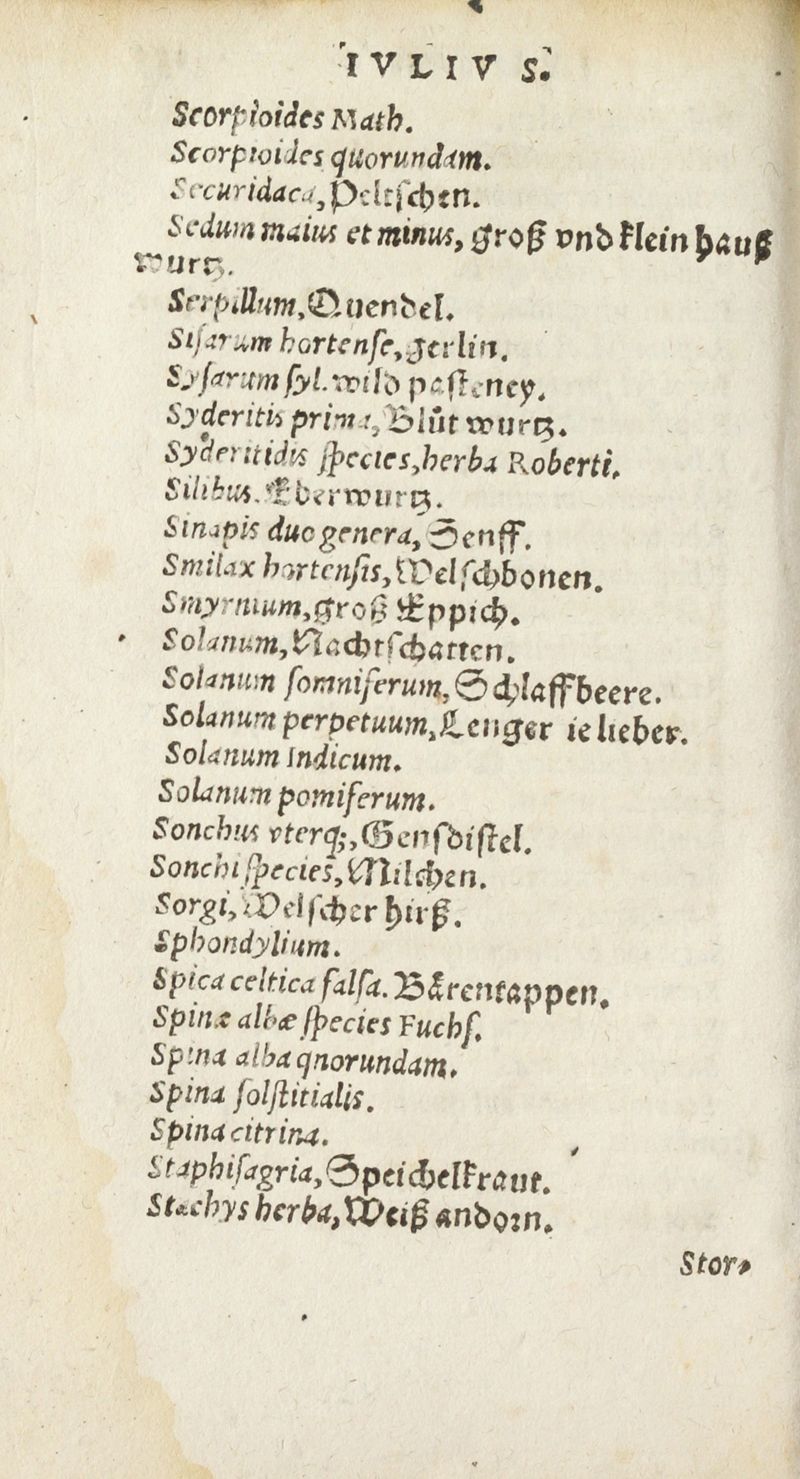 IVLIVS.
Scorpioides Math.
Scorpioides quorundam.
Securidaca, Peltschen.
Sedum maius et minus, groß vnd klein hauß
wurtz.
Serpillum, Quendel.
Sisarum hortense, gerlin.
Sysarum syl. wild pasteney.
Syderitis prima, Blůt wurtz.
Syderitidis species, herba Roberti,
Silibus. Eberwurtz.
Sinapis duo genera, Senff.
Smilax hortensis, Welschbonen.
Smyrnium, groß Eppich.
Solanum, Nachtschatten.
Solanum somniferum, Schlaffbeere.
Solanum perpetuum, Lenger ie lieber.
Solanum Indicum.
Solanum pomiferum.
Sonchus vterq;, Gensdistel.
Sonchi species, Milchen.
Sorgi, Welscher hirß.
Sphondylium.
Spica celtica falsa. Bärentappen.
Spinæ albæ species Fuchs.
Spina alba qnorundam.
Spina solstitialis.
Spina citrina.
Staphisagria, Speichelkraut.
Stachys herba, Weiß andorn.
Stor-